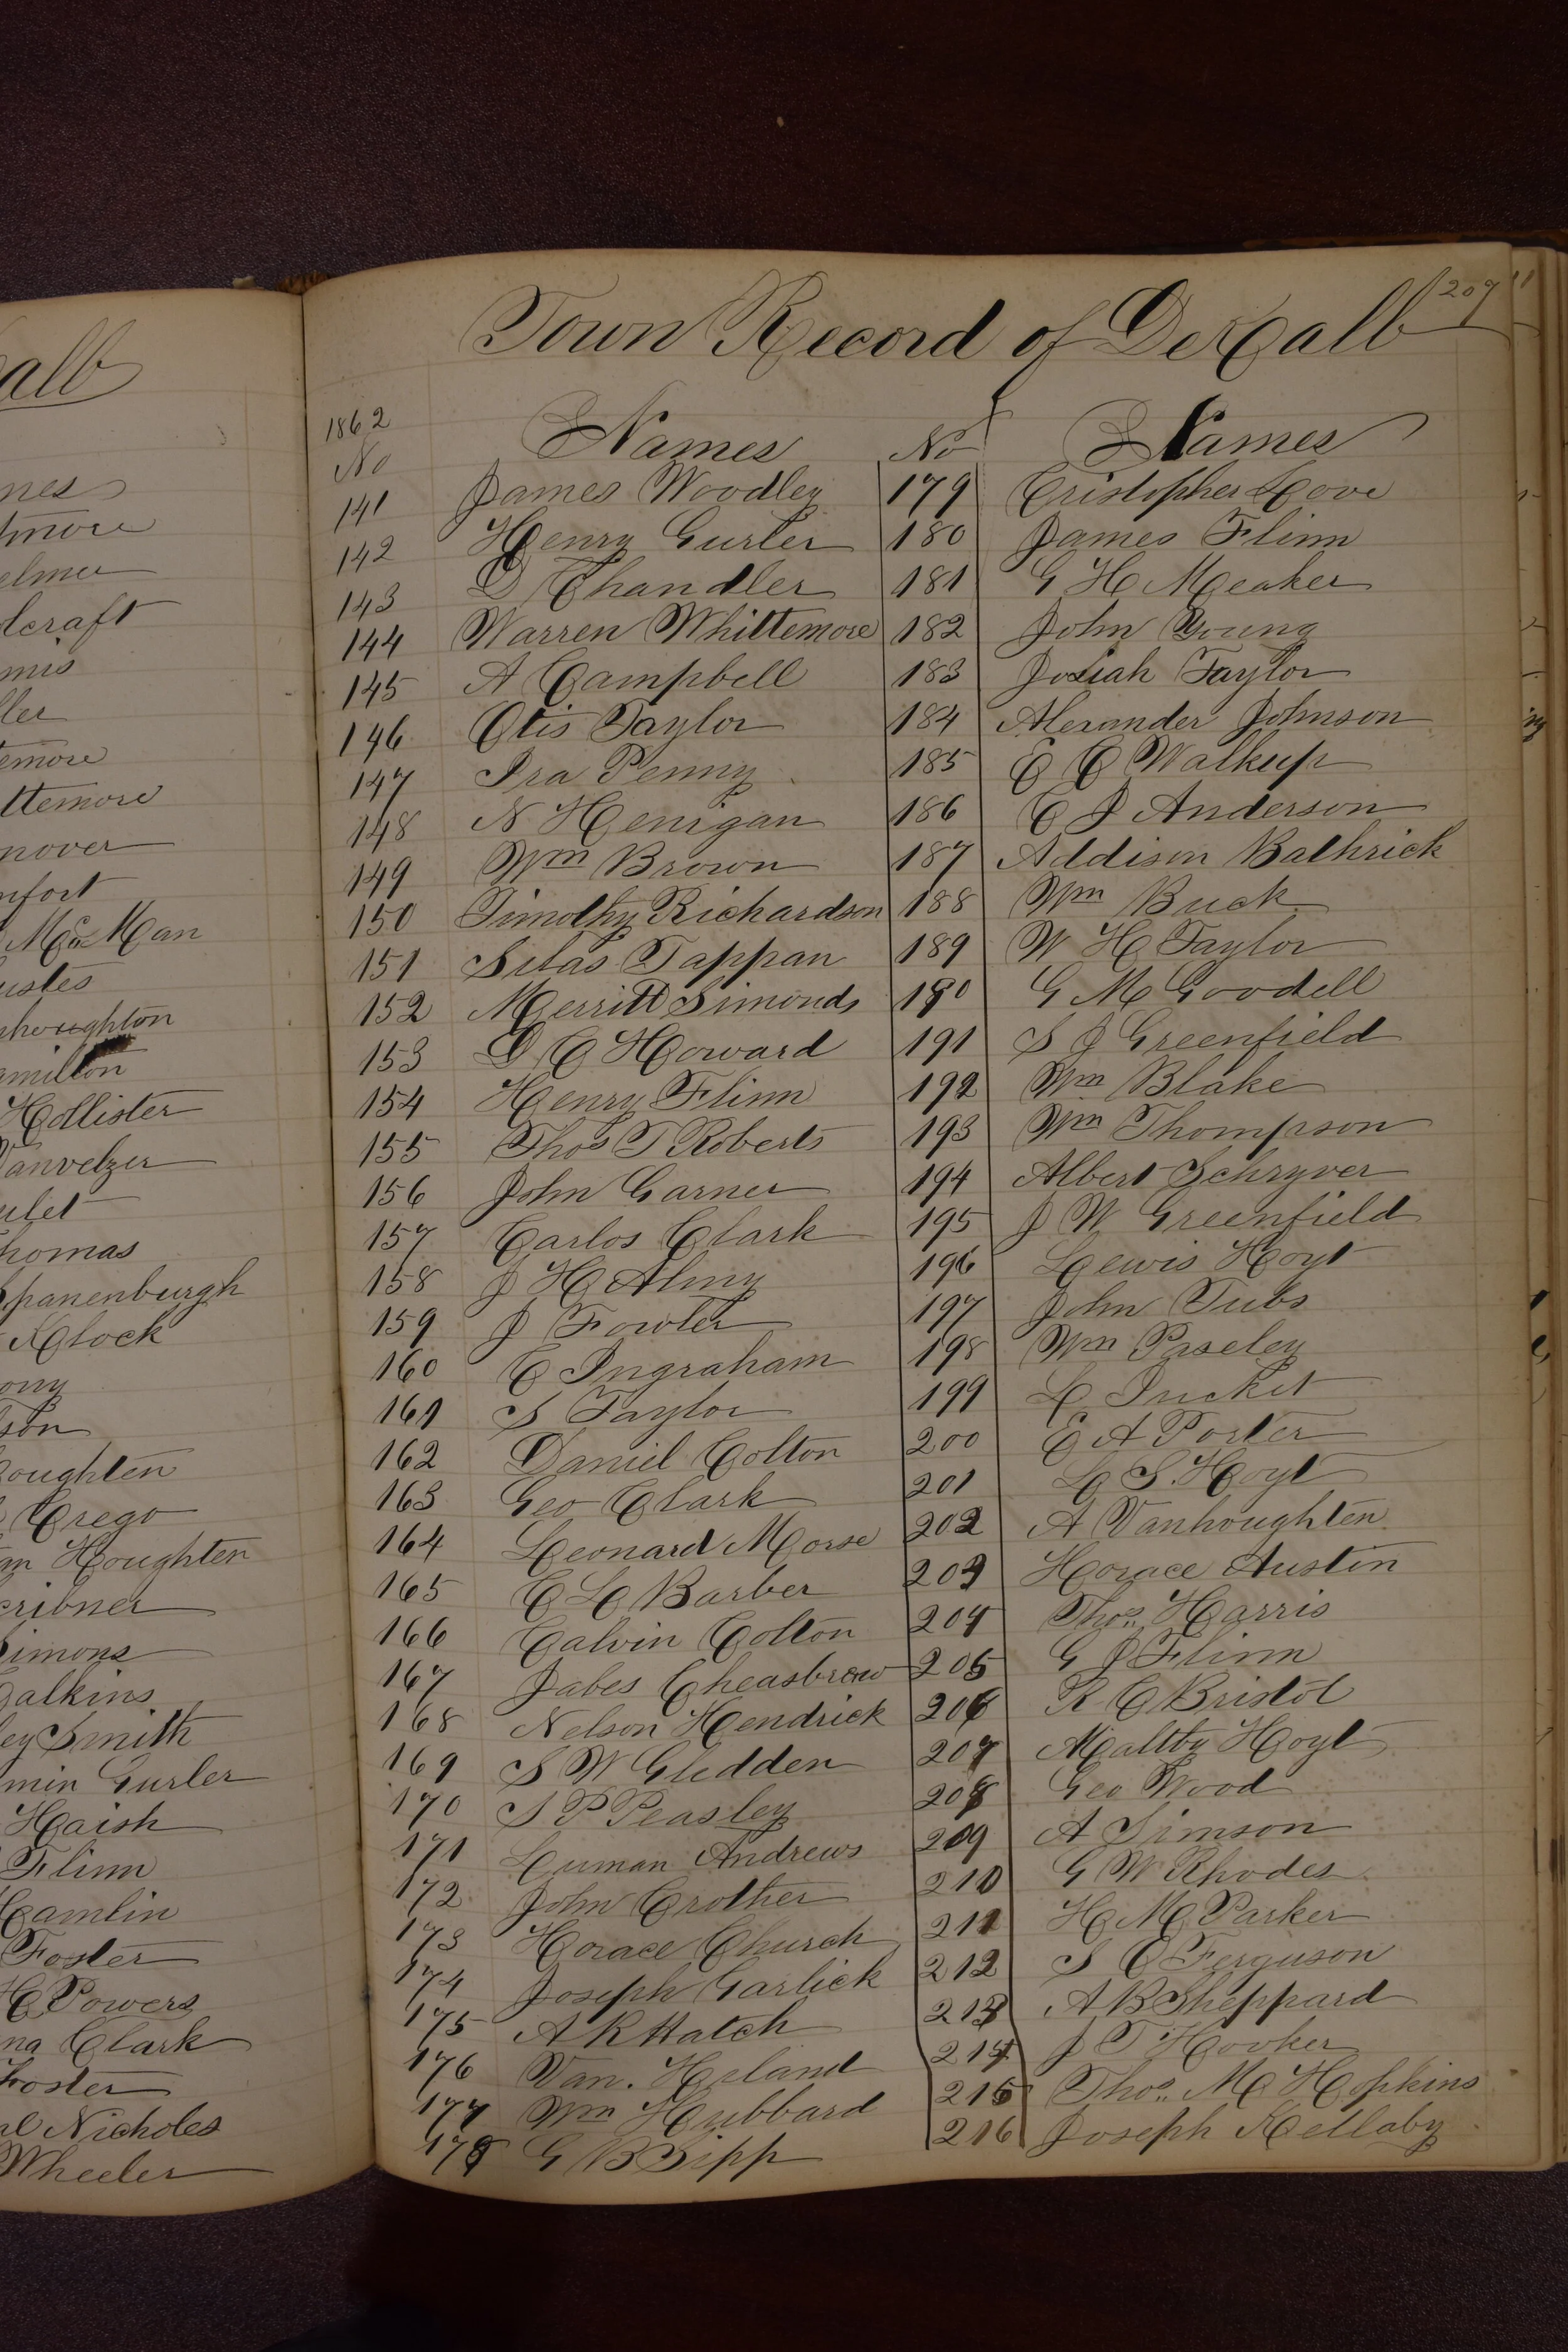 alb
nes
tmore
elmer
lcraft
mis
ller
temore
ttemore
nover
nfort
McMan
ustes
nhoughton
amilton
Hollister
Vanvelzer
ulet
Thomas
Spanenburgh
Klock
ony
son
oughten
Crego
an Houghten
cribner
Simons
alkins
ey Smith
min Gurler
Haish
Flinn
Hamlin
Foster
H Powers
na Clark
Foster
al Nicholes
Wheeler
Town Record of DeKalb 207
1862
No Names No Names
141 James Woodley 179 Cristopher Love
142 Henry Gurler 180 James Flinn
143 D Chandler 181 G H Meaker
144 Warren Whittemore 182 John Young
145 A Campbell 183 Josiah Taylor
146 Otis Taylor 184 Alexander Johnson
147 Ira Penny 185 E C Walkup
148 N Henigan 186 C J Anderson
149 Wm Brown 187 Addison Bathrick
150 Timothy Richardson 188 Wm Buck
151 Silas Tappan 189 W H Taylor
152 Merritt Simonds 190 G M Goodell
153 D C Howard 191 S J Greenfield
154 Henry Flinn 192 Wm Blake
155 Thos T Roberts 193 Wm Thompson
156 John Garner 194 Albert Schryver
157 Carlos Clark 195 J W Greenfield
158 J H Almy 196 Lewis Hoyt
159 J Fowler 197 John Tubs
160 C Ingraham 198 Wm Paseley
161 S Taylor 199 L
162 Daniel Colton 200 E A Porter
163 Geo Clark 201 L S. Hoyt
164 Leonard Morse 202 A Vanhoughten
165 C L Barber 203 Horace Austin
166 Calvin Colton 204 Thos. Harris
167 Jabes Cheasbrew 205 G J Flinn
168 Nelson Hendrick 206 R C Bristol
169 S W Gledden 207 Maltby Hoyt
170 S P Peasley 208 Geo Wood
171 Luman Andrews 209 A Simson
172 John Crother 210 G W Rhodes
173 Horace Church 211 H M Parker
174 Joseph Garlick 212 S C Ferguson
175 A R Hatch 213 A B Sheppard
176 Van. Heland 214 J T Hooker
177 Wm Hubbard 215 Thos. M Hopkins
178 G B Sipp 216 Joseph Kellaby